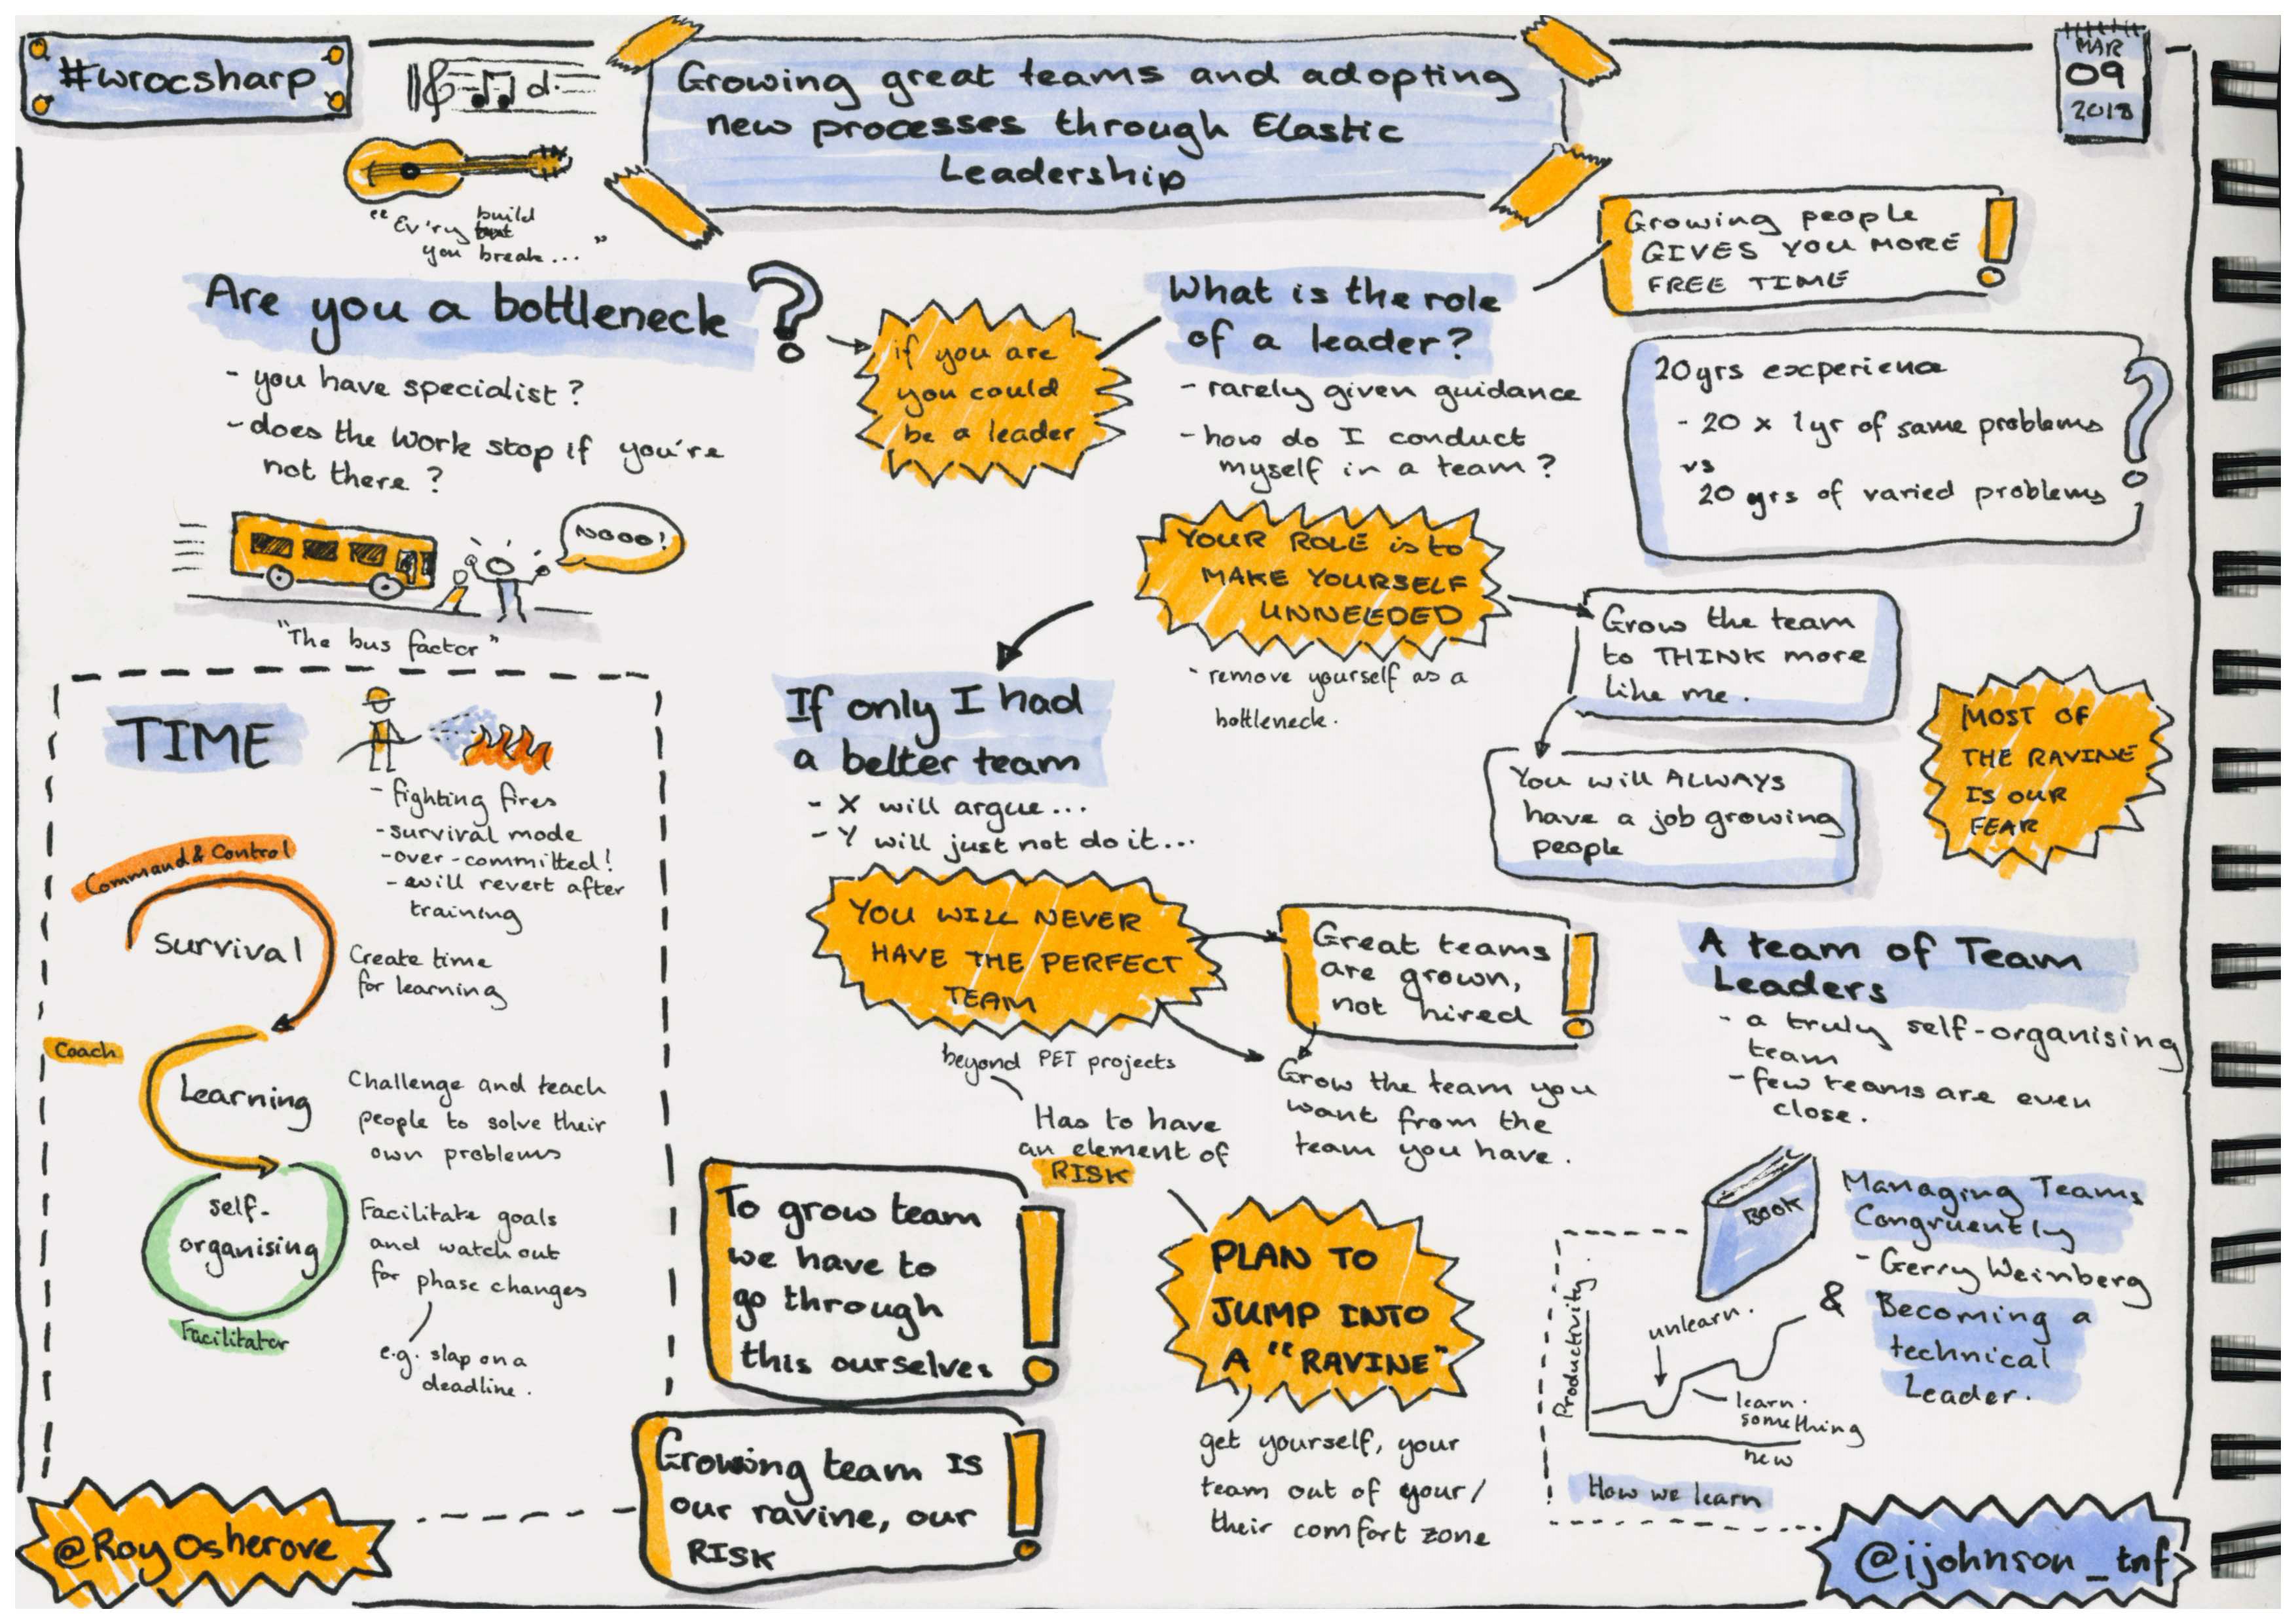 #wrocsharp
Growing great teams and adopting
new processes through Elastic
Leadership
MAR
09
2018
"Ev'ry build
you break..."
Are you a bottleneck?
- you have specialist?
- does the work stop if you're
not there?
NOOO!
"The bus factor"
if you are
you could
be a leader
What is the role
of a leader?
- rarely given guidance
- how do I conduct
myself in a team?
Growing people
GIVES YOU MORE
FREE TIME
!
20yrs experience
- 20 x 1yr of same problems
vs
20 yrs of varied problems
?
YOUR ROLE is to
MAKE YOURSELF
UNNEEDED
- remove yourself as a
bottleneck.
Grow the team
to THINK more
like me.
You will ALWAYS
have a job growing
people
MOST OF
THE RAVINE
IS OUR
FEAR
TIME
- fighting fires
- survival mode
- over-committed!
- will revert after
training
Command & Control
Survival
Create time
for learning
Coach
Learning
Challenge and teach
people to solve their
own problems
self-
organising
Facilitator
Facilitate goals
and watch out
for phase changes
e.g. slap on a
deadline.
If only I had
a better team
- X will argue...
- Y will just not do it...
YOU WILL NEVER
HAVE THE PERFECT
TEAM
beyond PET projects
Has to have
an element of
RISK
Great teams
are grown,
not hired
!
Grow the team you
want from the
team you have.
A team of Team
Leaders
- a truly self-organising
team
- few teams are even
close.
To grow team
we have to
go through
this ourselves
!
Growing team IS
our ravine, our
RISK
!
PLAN TO
JUMP INTO
A "RAVINE"
get yourself, your
team out of your/
their comfort zone
BOOK
Managing Teams
Congruently
- Gerry Weinberg
&
Becoming a
technical
Leader.
Productivity
unlearn.
learn
something
new
How we learn
@RoyOsherove
@ijohnson_tnf